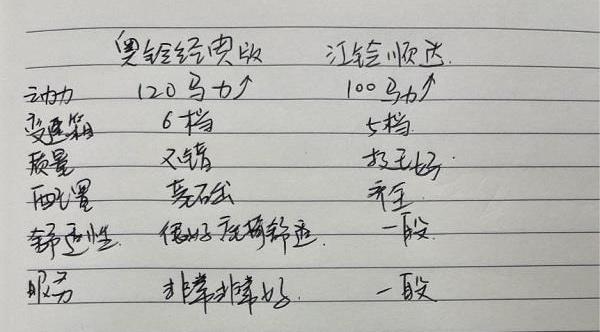 奥铃经典版 江铃顺达
动力 120马力↑ 100马力↑
变速箱 6档 5档
质量 不错 挺好
配置 亮石出 齐全
舒适性 很好 舒适 一般
服务 非常非常好 一般